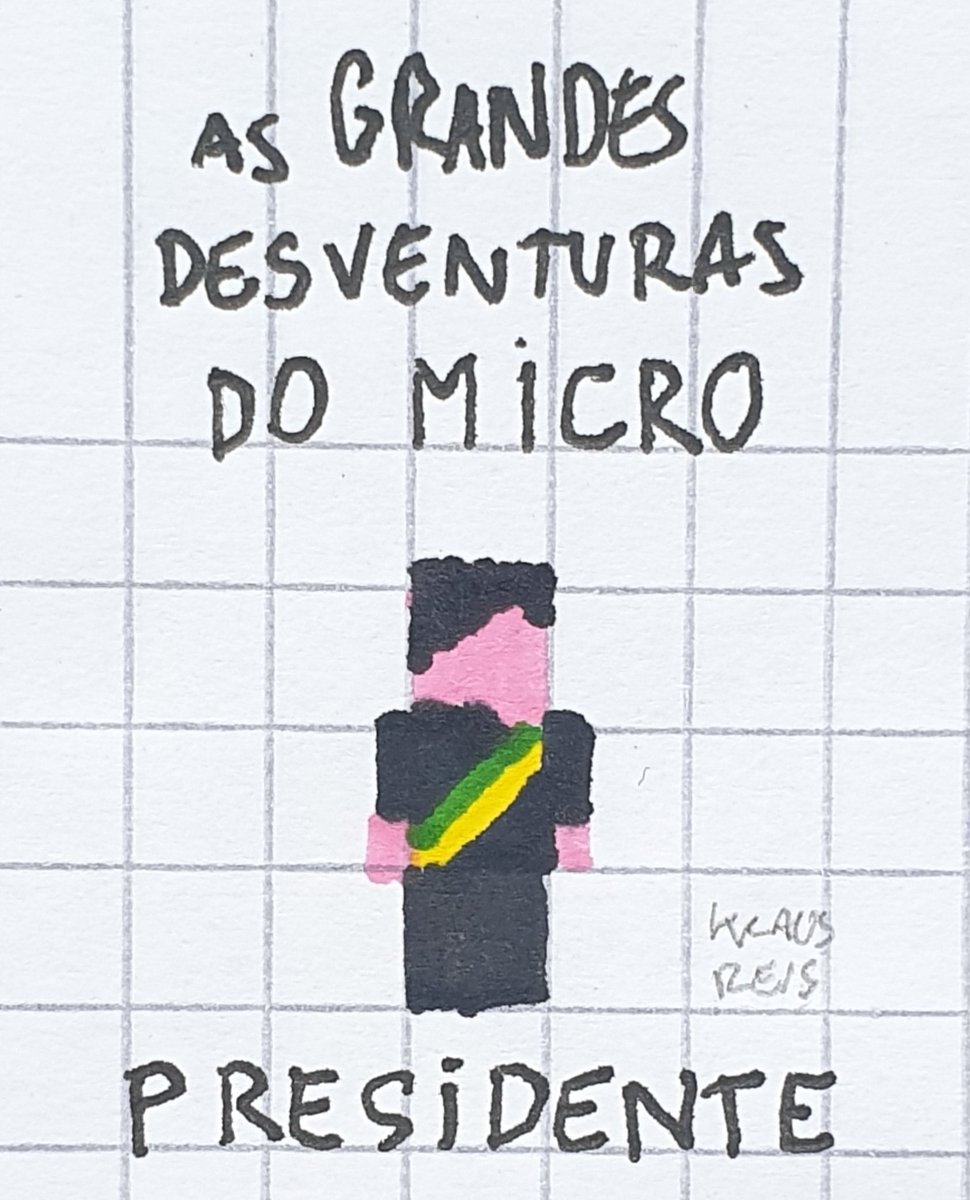 AS GRANDES
DESVENTURAS
DO MiCRO
KRAUS
REIS
PRESiDENTE